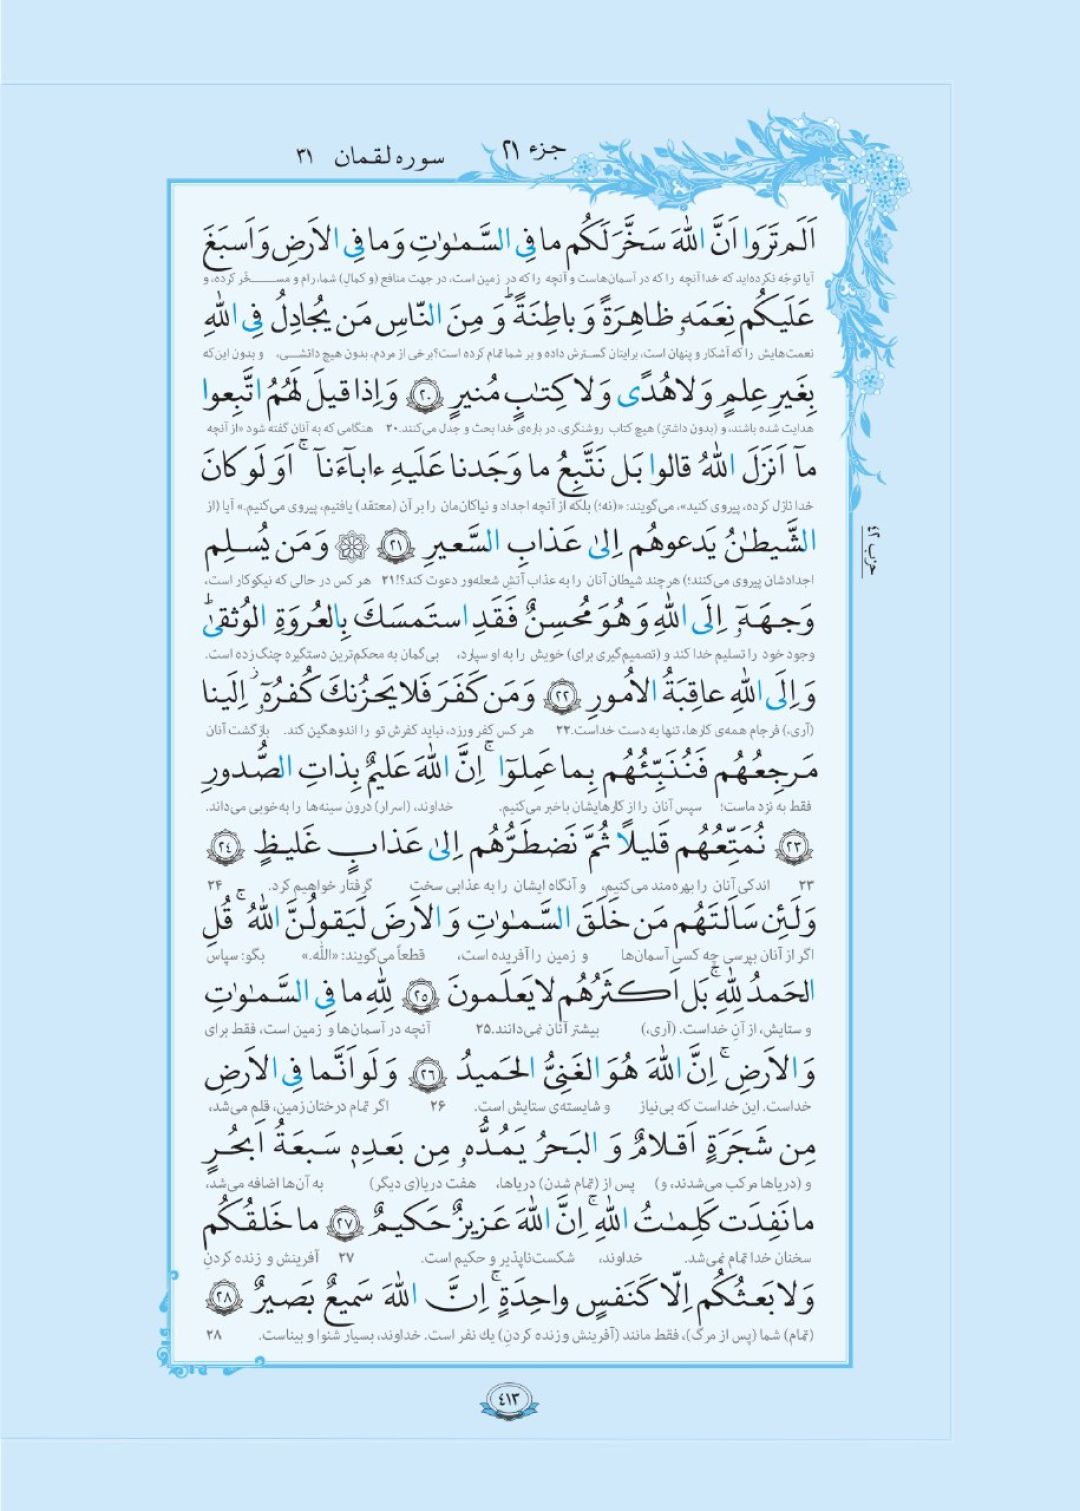 جزء ۲۱
سوره لقمان ۳۱
اَلَم تَرَوا اَنَّ اللّٰهَ سَخَّرَ لَكُم ما فِی السَّمٰوٰتِ وَ ما فِی الاَرضِ وَ اَسبَغَ
آیا توجّه نکرده‌اید که خدا آنچه را که در آسمان‌هاست و آنچه را که در زمین است، در جهت منافع (و کمال) شما، رام و مسخّر کرده، و
عَلَیكُم نِعَمَهٗ ظاهِرَةً وَ باطِنَةً ؕ وَ مِنَ النّاسِ مَن یُجادِلُ فِی اللّٰهِ
نعمت‌هایش را که آشکار و پنهان است، برایتان گسترش داده و بر شما تمام کرده است؟ برخی از مردم، بدون هیچ دانشی، و بدون این‌که
بِغَیرِ عِلمٍ وَ لا هُدًی وَ لا كِتٰبٍ مُنیرٍ ﴿۲۰﴾ وَ اِذا قیلَ لَهُمُ اتَّبِعوا
هدایت شده باشند، و (بدون داشتنِ) هیچ کتاب روشنگری، در باره‌ی خدا بحث و جدل می‌کنند.۲۰ هنگامی که به آنان گفته شود «از آنچه
مآ اَنزَلَ اللّٰهُ قالوا بَل نَتَّبِعُ ما وَجَدنا عَلَیهِ ءابآءَنآ ۚ اَوَ لَو كانَ
خدا نازل کرده، پیروی کنید»، می‌گویند: «(نه؛) بلکه از آنچه اجداد و نیاکان‌مان را بر آن (معتقد) یافتیم، پیروی می‌کنیم.» آیا (از
الشَّیطٰنُ یَدعوهُم اِلیٰ عَذابِ السَّعیرِ ﴿۲۱﴾ وَ مَن یُسلِم
اجدادشان پیروی می‌کنند؛) هرچند شیطان آنان را به عذاب آتشِ شعله‌ور دعوت کند؟!۲۱ هر کس در حالی که نیکوکار است،
حزب ۴۲
وَجهَهٗٓ اِلَی اللّٰهِ وَ هُوَ مُحسِنٌ فَقَدِ استَمسَكَ بِالعُروَةِ الوُثقیٰ ؕ
وجود خود را تسلیم خدا کند و (تصمیم‌گیری برای) خویش را به او سپارد، بی‌گمان به محکم‌ترین دستگیره چنگ زده است.
وَ اِلَی اللّٰهِ عاقِبَةُ الاُمورِ ﴿۲۲﴾ وَ مَن كَفَرَ فَلا یَحزُنكَ كُفرُهٗٓ ۚ اِلَینا
(آری،) فرجام همه‌ی کارها، تنها به دست خداست.۲۲ هر کس کفر ورزد، نباید کفرش تو را اندوهگین کند. بازگشت آنان
مَرجِعُهُم فَنُنَبِّئُهُم بِما عَمِلوٓا ۚ اِنَّ اللّٰهَ عَلیمٌ بِذاتِ الصُّدورِ
فقط به نزد ماست؛ سپس آنان را از کارهایشان باخبر می‌کنیم. خداوند، (اسرار) درون سینه‌ها را به‌خوبی می‌داند.
﴿۲۳﴾ نُمَتِّعُهُم قَلیلًا ثُمَّ نَضطَرُّهُم اِلیٰ عَذابٍ غَلیظٍ ﴿۲۴﴾
۲۳ اندکی آنان را بهره‌مند می‌کنیم، و آنگاه ایشان را به عذابی سخت گرفتار خواهیم کرد. ۲۴
وَ لَئِن سَاَلتَهُم مَن خَلَقَ السَّمٰوٰتِ وَ الاَرضَ لَیَقولُنَّ اللّٰهُ ۚ قُلِ
اگر از آنان بپرسی چه کسی آسمان‌ها و زمین را آفریده است، قطعاً می‌گویند: «الله.» بگو: سپاس
الحَمدُ لِلّٰهِ ۚ بَل اَكثَرُهُم لا یَعلَمونَ ﴿۲۵﴾ لِلّٰهِ ما فِی السَّمٰوٰتِ
و ستایش، از آنِ خداست. (آری،) بیشتر آنان نمی‌دانند.۲۵ آنچه در آسمان‌ها و زمین است، فقط برای
وَ الاَرضِ ۚ اِنَّ اللّٰهَ هُوَ الغَنِیُّ الحَمیدُ ﴿۲۶﴾ وَ لَو اَنَّما فِی الاَرضِ
خداست. این خداست که بی‌نیاز و شایسته‌ی ستایش است. ۲۶ اگر تمام درختان زمین، قلم می‌شد،
مِن شَجَرَةٍ اَقلامٌ وَ البَحرُ یَمُدُّهٗ مِن بَعدِهٖ سَبعَةُ اَبحُرٍ
و (دریاها مرکب می‌شدند، و) پس از (تمام شدن) دریاها، هفت دریا(ی دیگر) به آن‌ها اضافه می‌شد،
ما نَفِدَت كَلِمٰتُ اللّٰهِ ۚ اِنَّ اللّٰهَ عَزیزٌ حَكیمٌ ﴿۲۷﴾ ما خَلقُكُم
سخنان خدا تمام نمی‌شد. خداوند، شکست‌ناپذیر و حکیم است. ۲۷ آفرینش و زنده کردنِ
وَ لا بَعثُكُم اِلّا كَنَفسٍ واحِدَةٍ ۚ اِنَّ اللّٰهَ سَمیعٌ بَصیرٌ ﴿۲۸﴾
(تمام) شما (پس از مرگ)، فقط مانند (آفرینش و زنده کردنِ) یك نفر است. خداوند، بسیار شنوا و بیناست. ۲۸
۴۱۳